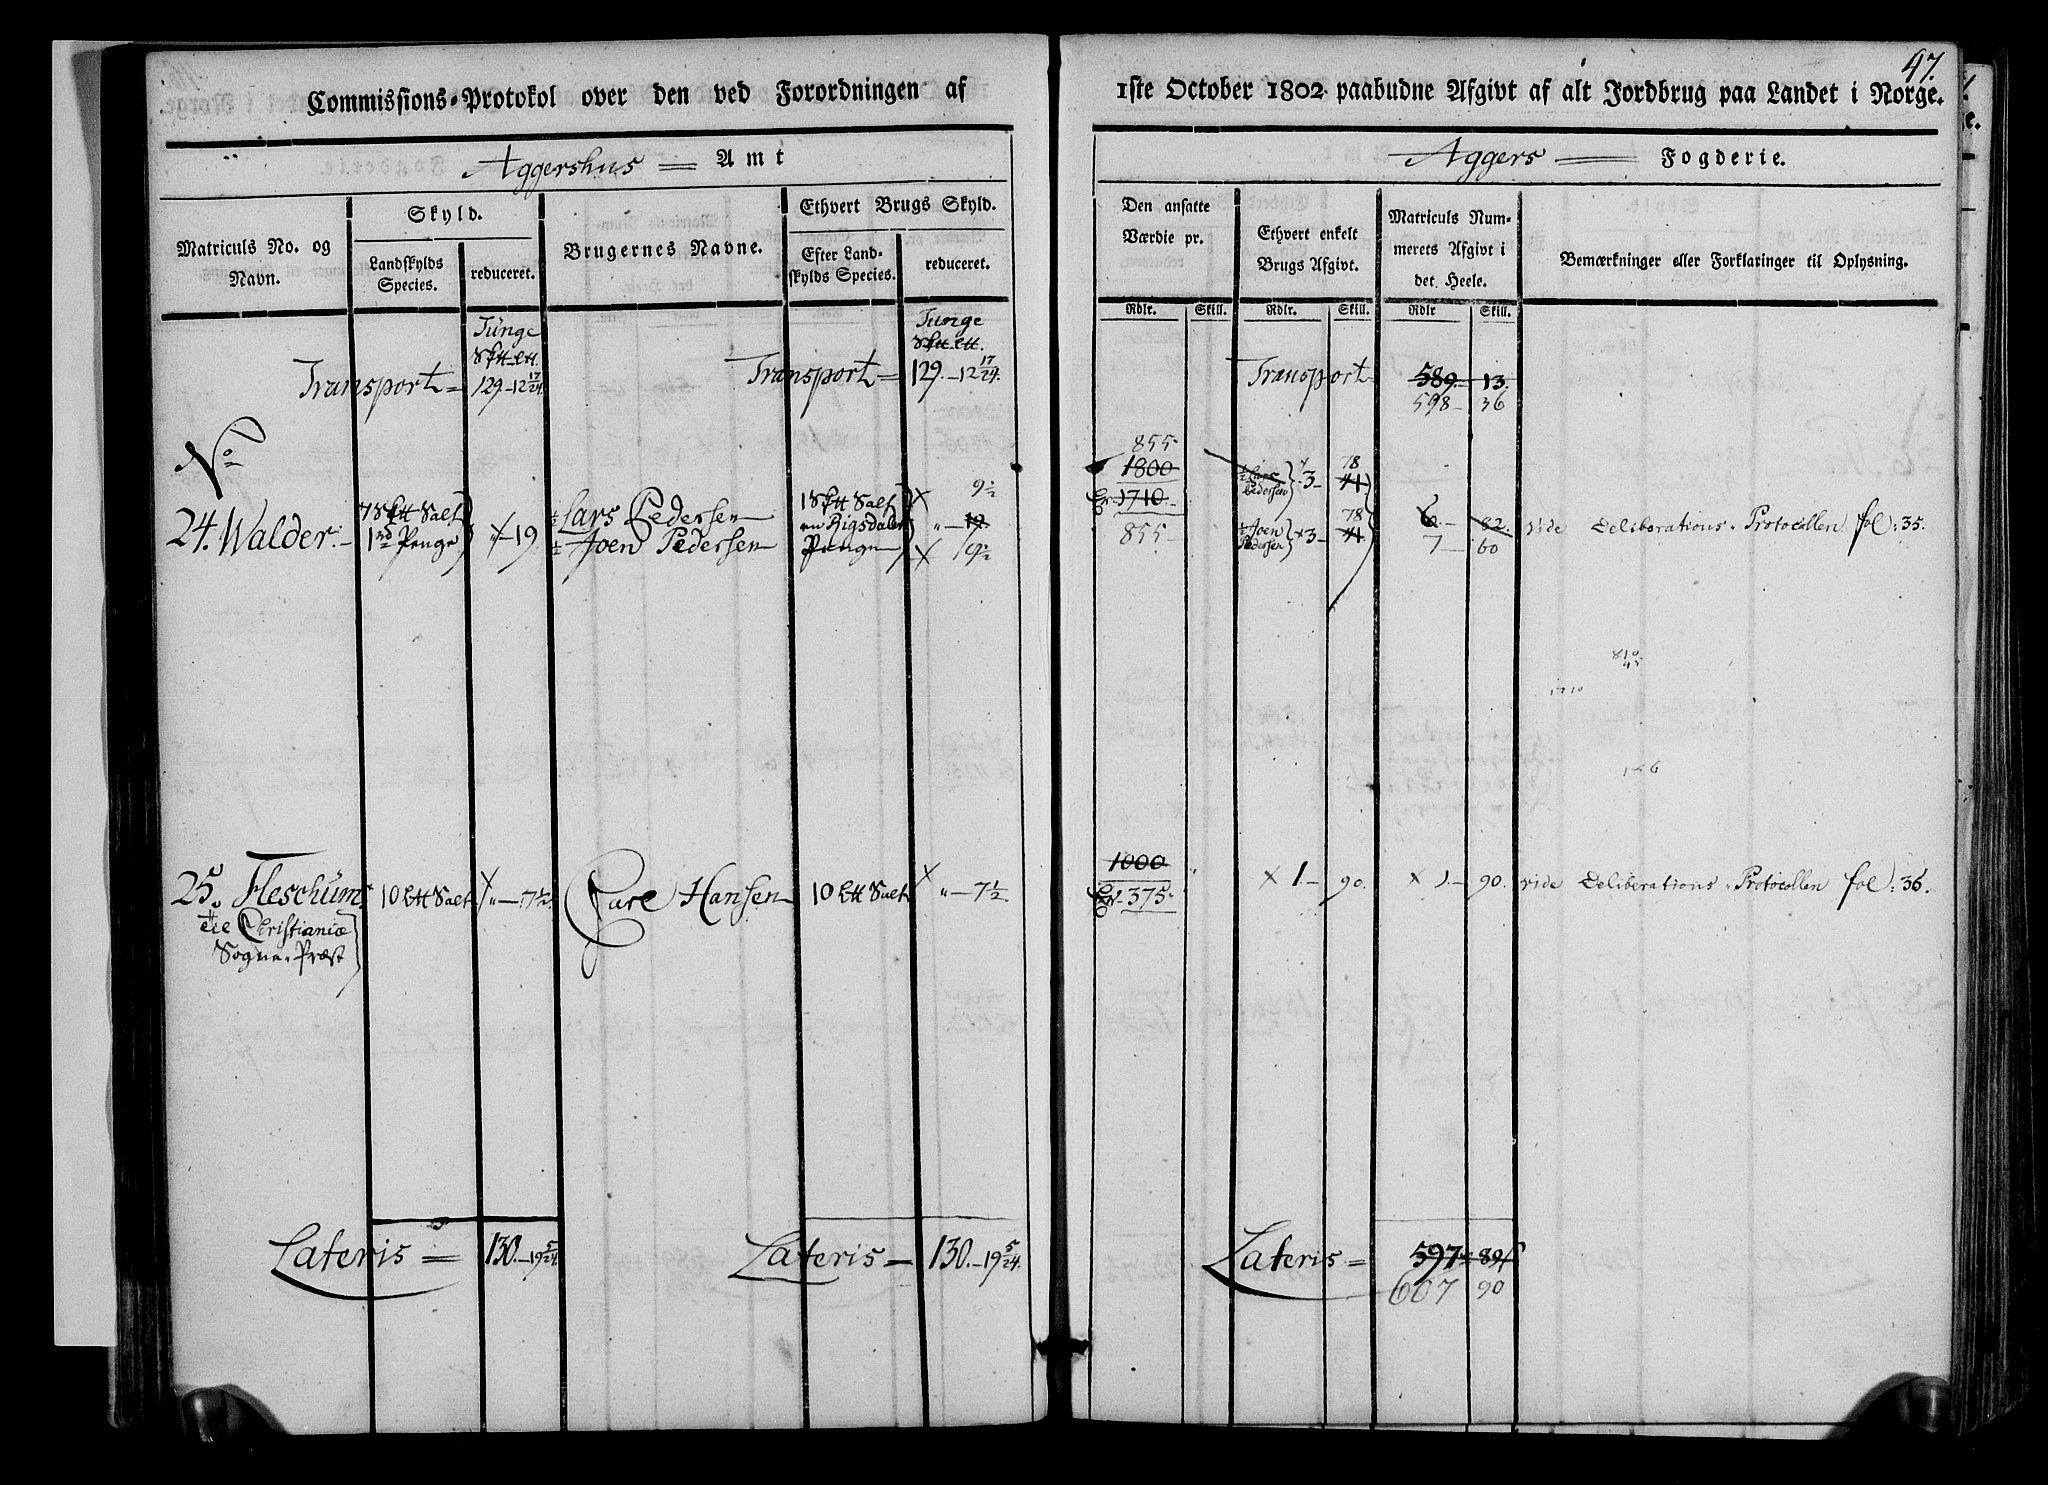 47.
Commissions-Protokol over den ved Forordningen af 1ste October 1802 paabudne Afgivt af alt Jordbrug paa Landet i Norge.
Aggershus Amt
Aggers Fogderie.
Matriculs No. og Navn.
Skyld.
Landskylds Species.
reduceret.
Brugernes Navne.
Ethvert Brugs Skyld.
Efter Landskylds Species.
reduceret.
Den ansatte Værdie pr.
Ethvert enkelt Brugs Afgivt.
Matriculs Nummerets Afgivt i det Heele.
Bemærkninger eller Forklaringer til Oplysning.
Rdlr. Skill. Rdlr. Skill. Rdlr Skill.
Tunge Tunge
Transport = 129.-12 17/24 Transport = 129.-12 17/24. Transport 589.-13.
598-36
No
855-
1800
1710.-
855.-
24. Walder.- 7 Skt Salt 1 rd Penge " - 19
1/2 Lars Pedersen
1/2 Joen Pedersen
1 Skt Salt en Rigsdaler Penge
9 1/2
" - 19
9 1/2
1/2 Lars Pedersen 3- 78 41
1/2 Joen Pedersen 3- 78 41
6.- 82.
7- 60
vide Deliberations-Protocollen fol: 35.
810
45
1710
25. Fleschum 10 Ltt Salt " - 7 1/2 Carl Hansen 10 Ltt Salt " - 7 1/2.
til Christianiæ
Sogne-Præst
1000
375-
1.- 90. 1.- 90. vide Deliberations-Protocollen fol: 36.
Lateris = 130.-19 5/24. Lateris = 130.-19 5/24. Lateris = 597-89
607 90